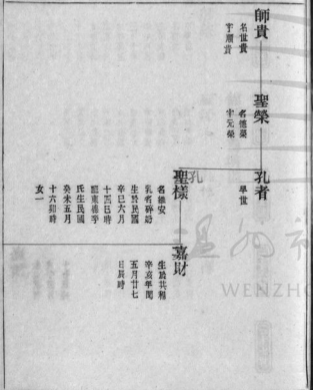 師貴
名世貴
字順貴
聖榮
名德榮
字元榮
孔者
早世
孔
聖樣
名維安
乳名碎
生於民國
辛巳六月
十四日時
氏生民國
癸未五月
十六卯時
女一
嘉財
生於共和
辛亥年閏
五月廿七
日辰時
溫州市
WENZHO